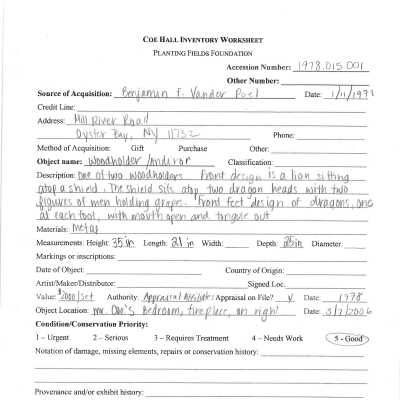 COE HALL INVENTORY WORKSHEET
PLANTING FIELDS FOUNDATION
Accession Number: 1978.015.001
Other Number:
Source of Acquisition: Benjamin F. Vander Poel Date: 1/11/1978
Credit Line:
Address: Mill River Road
Oyster Bay, NY 11732 Phone:
Method of Acquisition: Gift Purchase Other:
Object name: Woodholder/Andiron Classification:
Description: One of two woodholders. Front design is a lion sitting
atop a shield. The shield sits atop two dragon heads with two
figures of men holding grapes. Front feet design of dragons, one
at each foot, with mouth open and tongue out
Materials: Metal
Measurements: Height: 35 in Length: 21 in Width: Depth: 25in Diameter:
Markings or inscriptions:
Date of Object: Country of Origin:
Artist/Maker/Distributor: Signed Loc.
Value: $2000/set Authority: Appraisal Affiliates Appraisal on File? Y Date: 1978
Object Location: Mr. Coe's Bedroom, fireplace, on right Date: 3/7/2006
Condition/Conservation Priority:
1 – Urgent 2 – Serious 3 – Requires Treatment 4 – Needs Work 5 - Good
Notation of damage, missing elements, repairs or conservation history:
Provenance and/or exhibit history: